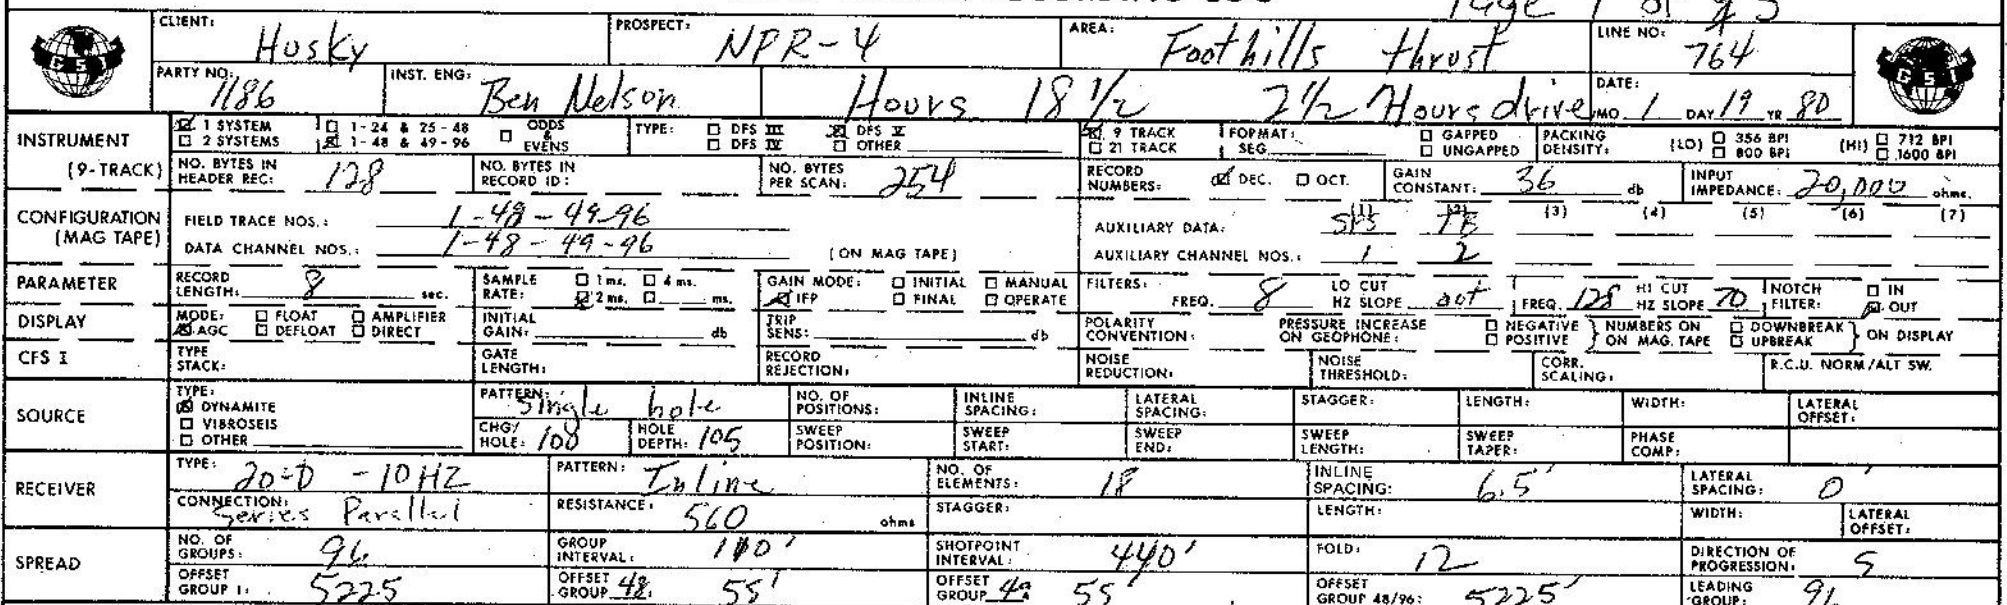 Page 1 of 5
CLIENT: Husky PROSPECT: NPR-4 AREA: Foothills thrust LINE NO: 764
GSI GSI
PARTY NO: 1186 INST. ENG: Ben Nelson Hours 18 1/2 2 1/2 Hours drive DATE: MO. 1 DAY 19 YR 80
INSTRUMENT 1 SYSTEM 1-24 & 25-48 ODDS & EVENS TYPE: DFS III DFS V 9 TRACK FORMAT: GAPPED PACKING DENSITY: (LO) 356 BPI (HI) 712 BPI
2 SYSTEMS 1-48 & 49-96 DFS IV OTHER 21 TRACK SEG UNGAPPED 800 BPI 1600 BPI
(9-TRACK) NO. BYTES IN HEADER REC: 128 NO. BYTES IN RECORD ID: NO. BYTES PER SCAN: 254 RECORD NUMBERS: DEC. OCT. GAIN CONSTANT: 36 db INPUT IMPEDANCE: 20,000 ohms.
CONFIGURATION (MAG TAPE) FIELD TRACE NOS.: 1-48-49-96 AUXILIARY DATA: (1) (2) TB (3) (4) (5) (6) (7)
DATA CHANNEL NOS.: 1-48-49-96 (ON MAG TAPE) AUXILIARY CHANNEL NOS.: 1 2
PARAMETER RECORD LENGTH: 8 sec. SAMPLE RATE: 1 ms. 4 ms. 2 ms. ms. GAIN MODE: INITIAL MANUAL IFP FINAL OPERATE FILTERS: FREQ. 8 LO CUT HZ SLOPE out FREQ. 128 HI CUT HZ SLOPE 70 NOTCH FILTER: IN OUT
DISPLAY MODE: FLOAT AMPLIFIER AGC DEFLOAT DIRECT INITIAL GAIN: db TRIP SENS: db POLARITY CONVENTION: PRESSURE INCREASE ON GEOPHONE: NEGATIVE POSITIVE NUMBERS ON MAG. TAPE DOWNBREAK UPBREAK ON DISPLAY
CFS I TYPE STACK: GATE LENGTH: RECORD REJECTION: NOISE REDUCTION: NOISE THRESHOLD: CORR. SCALING: R.C.U. NORM/ALT SW.
SOURCE TYPE: DYNAMITE VIBROSEIS OTHER PATTERN: Single hole NO. OF POSITIONS: INLINE SPACING: LATERAL SPACING: STAGGER: LENGTH: WIDTH: LATERAL OFFSET:
CHG/HOLE: 108 HOLE DEPTH: 105 SWEEP POSITION: SWEEP START: SWEEP END: SWEEP LENGTH: SWEEP TAPER: PHASE COMP:
RECEIVER TYPE: 20-D - 10 HZ PATTERN: Inline NO. OF ELEMENTS: 18 INLINE SPACING: 6.5' LATERAL SPACING: 0'
CONNECTION: Series Parallel RESISTANCE: 560 ohms STAGGER: LENGTH: WIDTH: LATERAL OFFSET:
SPREAD NO. OF GROUPS: 96 GROUP INTERVAL: 110' SHOTPOINT INTERVAL: 440' FOLD: 12 DIRECTION OF PROGRESSION: S
OFFSET GROUP 1: 5225 OFFSET GROUP 48: 55' OFFSET GROUP 49: 55' OFFSET GROUP 48/96: 5225' LEADING GROUP: 96